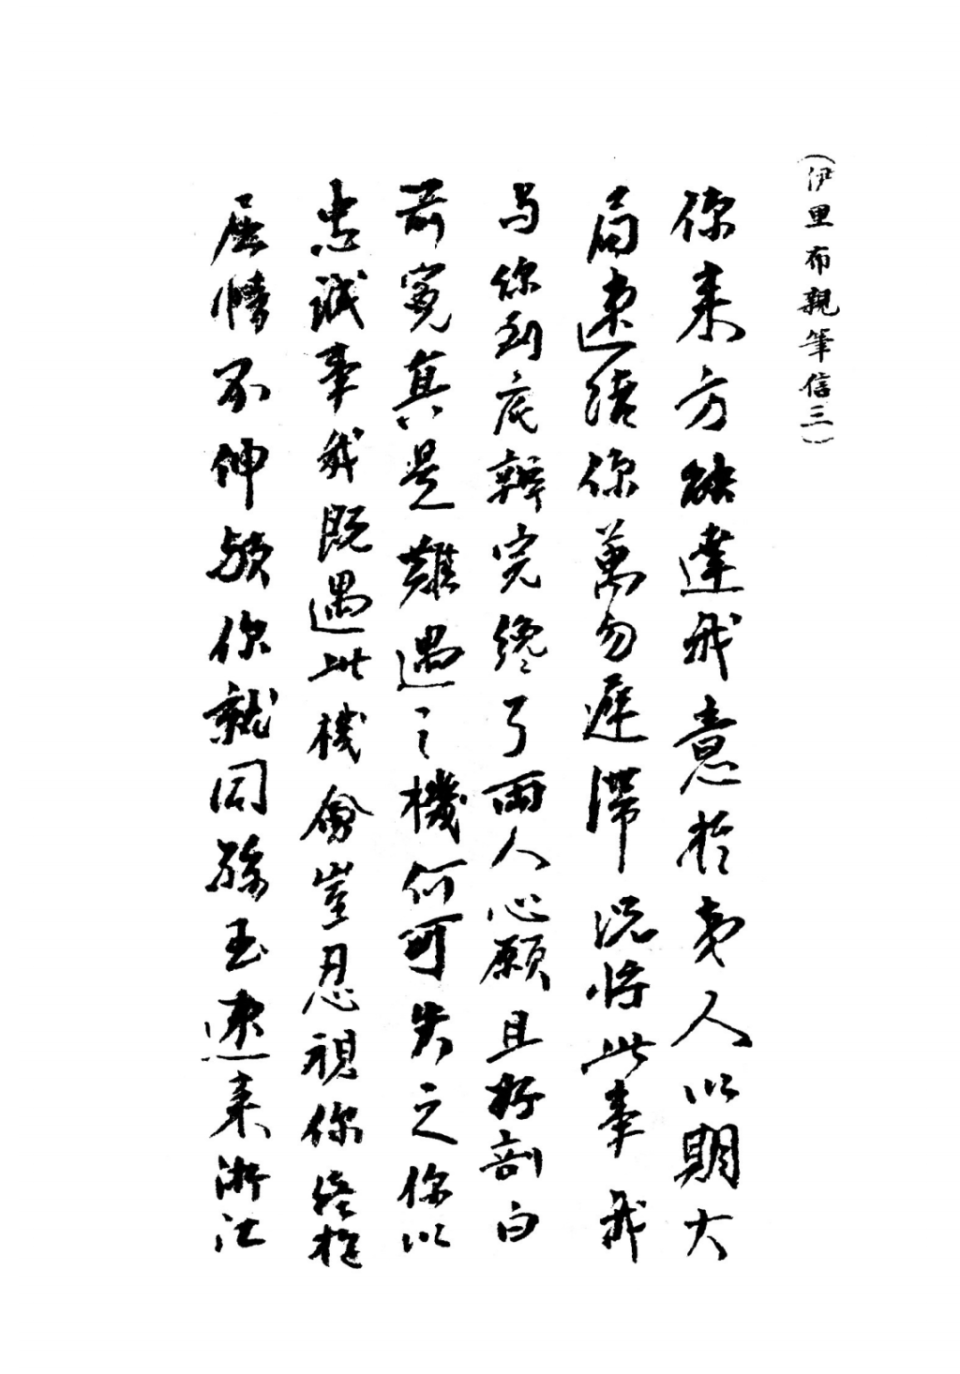 （伊里布親筆信三）
你来方能達我意於夷人以期大
局速结你萬勿遲滯況將此事我
与你到底辦完纔了兩人心願且好剖白
前寃真是難遇之機何可失之你以
忠誠事我既遇此機會豈忍視你終抱
屈情不伸放你就同孫玉速来浙江